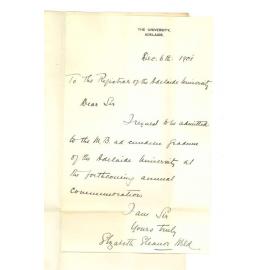 THE UNIVERSITY,
ADELAIDE.
Dec. 6th 1901
To the Registrar of the Adelaide University
Dear Sir
I request to be admitted
to the M.B. ad eundem gradum
of the Adelaide University at
the forthcoming annual
commemoration
I am Sir
Yours truly
Elizabeth Eleanor